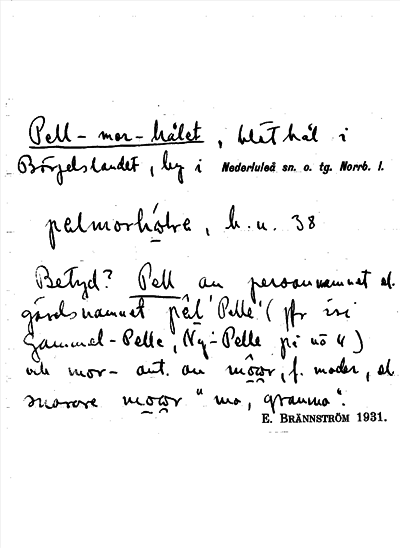 Pell-mor-hålet, blöthål i
Börjelslandet, by i Nederluleå sn. o. tg. Norrb. l.
pelmorhólre, h. u. 38
Betyd? Pell av personnamnet el.
gårdsnamnet pêl 'Pelle' (jfr
Gammel-Pelle, Ny-Pelle på nö 4)
och mor- ant. av môwr, f. moder, el.
snarare mowor "mo, granmo".
E. BRÄNNSTRÖM 1931.